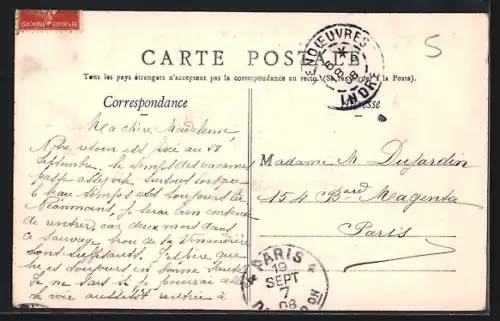 CARTE POSTALE
Tous les pays étrangers n'acceptent pas la correspondance au recto (Se renseigner à la Poste).
Correspondance
Adresse
Ma chère Madeleine,
Notre retour est fixé au 28
Septembre, le temps des vacances
passe assez vite surtout lorsque
le beau temps est toujours là
Néanmoins, je serai bien contente
de rentrer, car deux mois dans
ce sauvage trou de la
sont suffisants. J'espère que
tu es toujours en bonne santé
Je ne sais si je pourrai aller
te voir aussitôt rentrée à
Madame M. Dujardin
154 Bard Magenta
Paris
VENDŒUVRES
08
INDRE
PARIS
19
SEPT
7
08
5